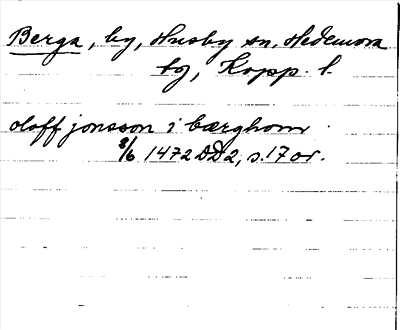 Berga, by, Husby sn, Hedemora
tg, Kopp. l.
oloff jonsson i bærghom
8/6 1472 DD2, s. 17 or.